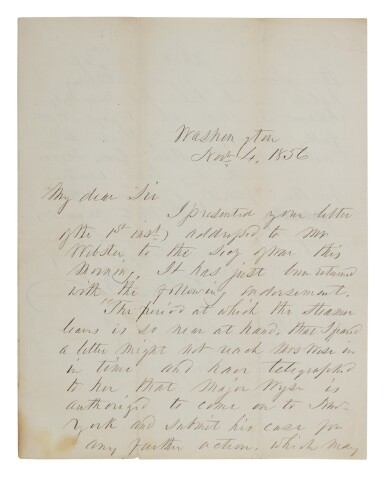 Washington
Novr 4, 1856
My dear Sir
I presented your letter
of the 1st inst) addressed to Mr
Webster, to the Secy of War this
Morning. It has just been returned
with the following endorsement.
"The period at which the Steamer
leaves is so near at hand, that I feared
a letter might not reach Mrs Wyse in
in time and have telegraphed
to her that Major Wyse is
authorized to come on to New-
York and submit his case for
any further action, which may